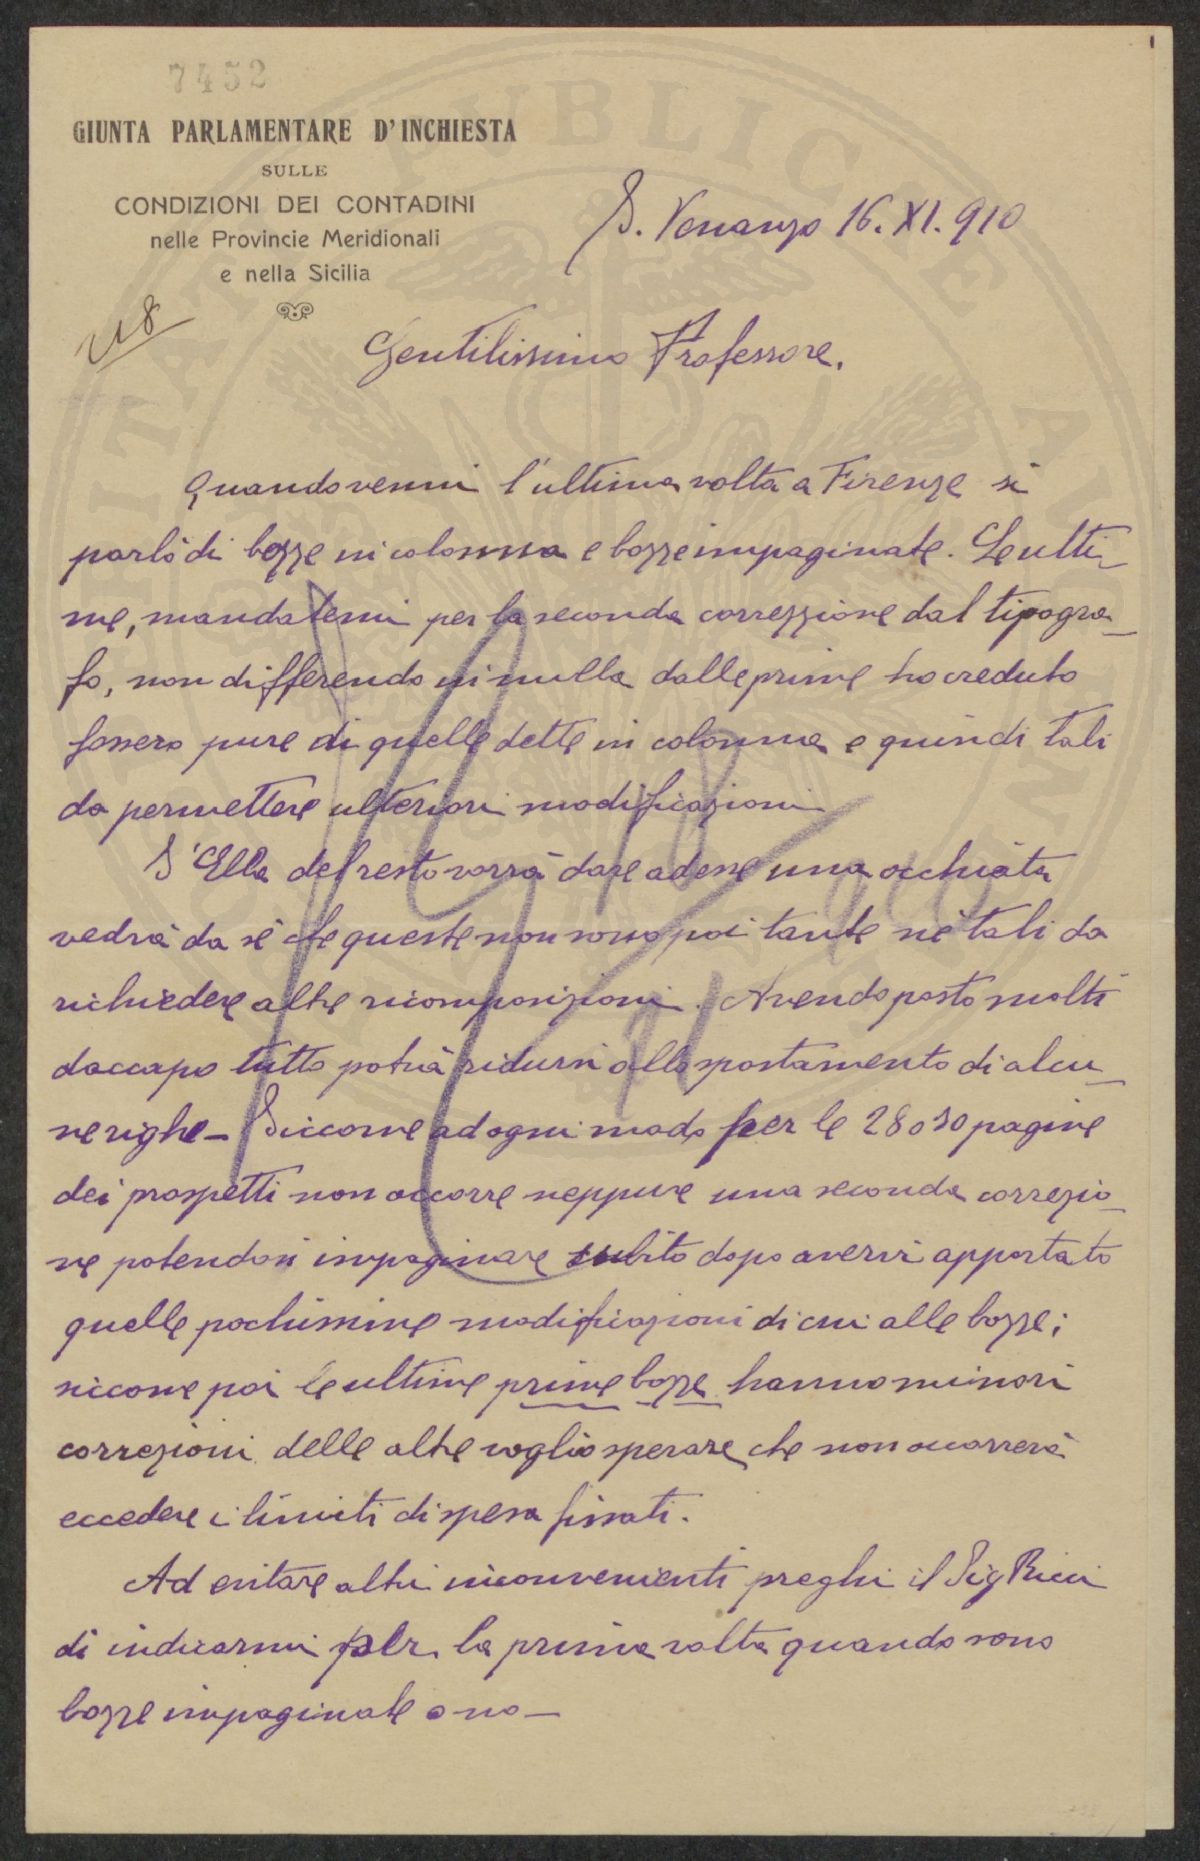 7452
GIUNTA PARLAMENTARE D'INCHIESTA
SULLE
CONDIZIONI DEI CONTADINI
nelle Provincie Meridionali
e nella Sicilia
S. Venanzo 16. XI. 910
Gentilissimo Professore.
Quando venni l'ultima volta a Firenze si
parlò di bozze in colonna e bozze impaginate. Le ulti-
me, mandatemi per la seconda correzzione dal tipogra-
fo, non differendo in nulla dalle prime ho creduto
fossero pure di quelle dette in colonna e quindi tali
da permettere ulteriori modificazioni
S'Ella del resto vorrà dare adesse una occhiata
vedrà da sè che queste non sono poi tante nè tali da
richiedere altre ricomposizioni. Avendo posto molti
daccapo tutto potrà ridursi allo spostamento di alcu-
ne righe - Siccome ad ogni modo per le 28 o 30 pagine
dei prospetti non occorre neppure una seconda correzio-
ne potendosi impaginare subito dopo avervi apportato
quelle pochissime modificazioni di cui alle bozze;
siccome poi le ultime prime bozze hanno minori
correzioni delle altre voglio sperare che non occorrerà
eccedere i limiti di spesa fissati.
Ad evitare altri inconvenienti preghi il Sig Ricci
di indicarmi per la prima volta quando sono
bozze impaginate o no -